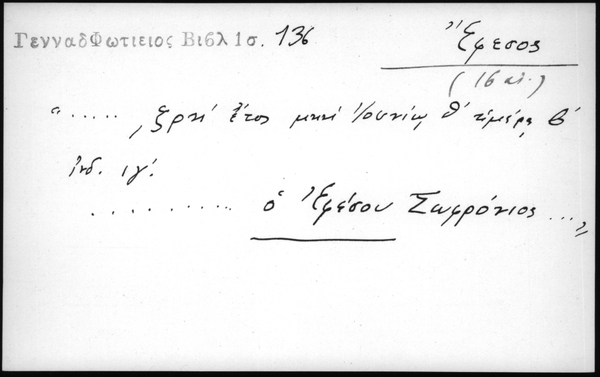 ΓενναδΦωτιειος Βιβλ 1σ. 136
Ἔφεσος
(16 αἰ.)
"..... , ζρκί ἔτος μηνί Ἰουνίῳ θ΄ ἡμέρᾳ β΄
ἰνδ. ιγ΄.
.......... ὁ Ἐφέσου Σωφρόνιος ..."